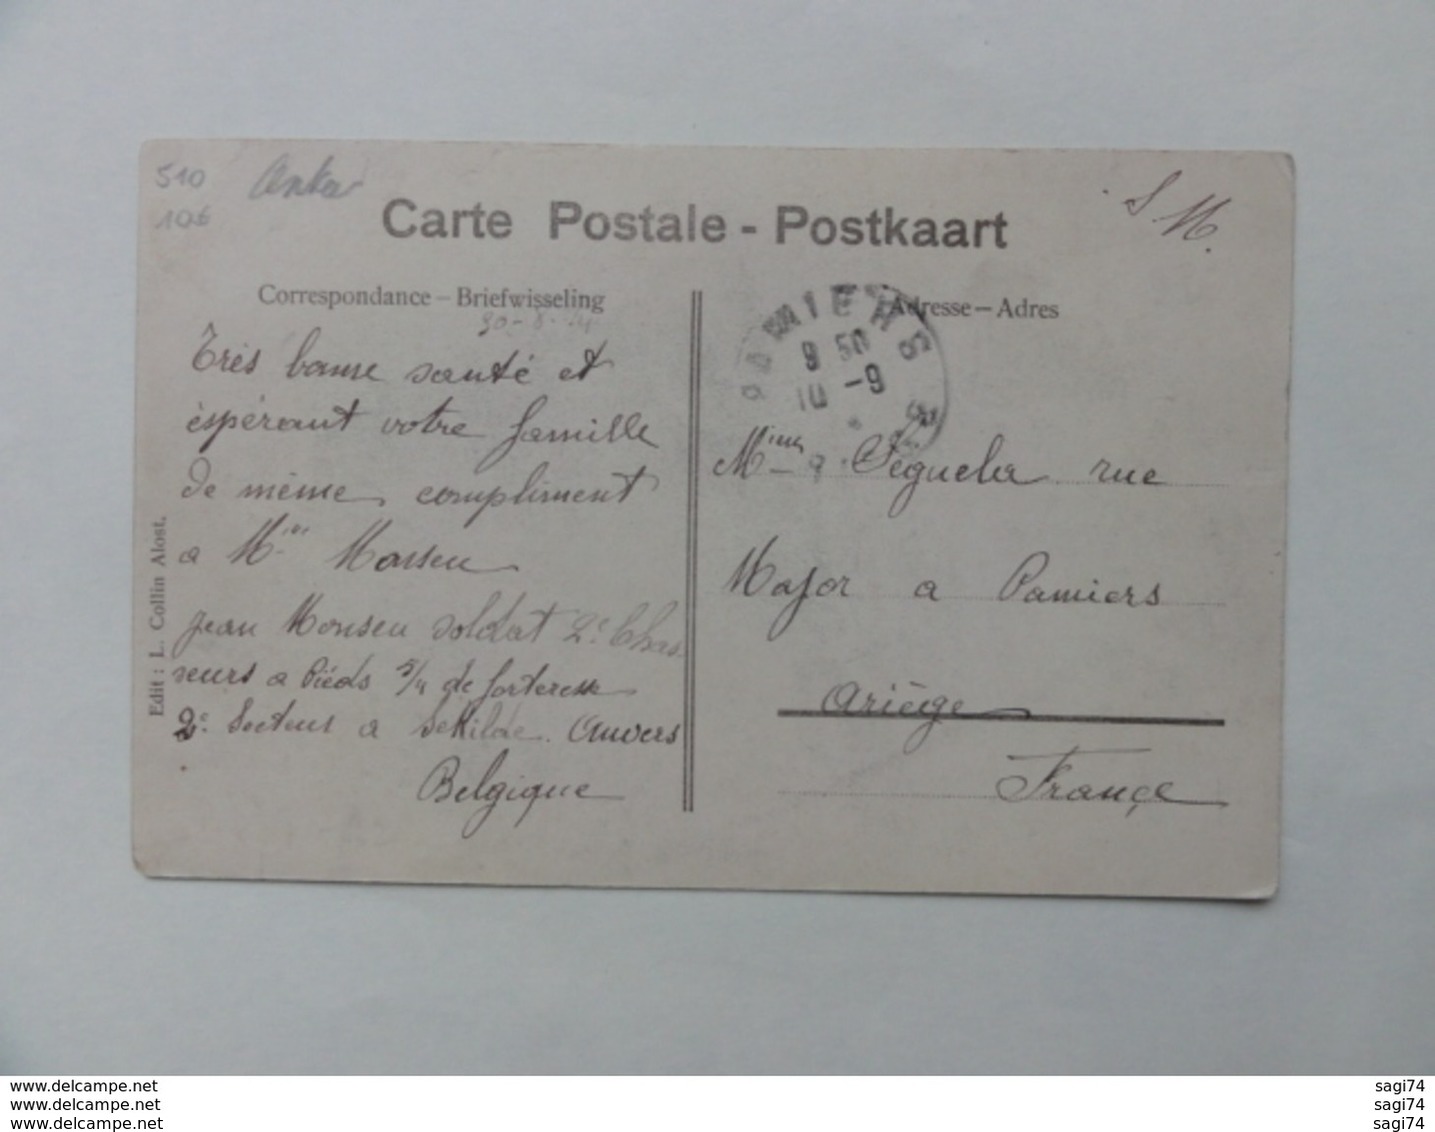 510
106
S. M.
Carte Postale - Postkaart
Correspondance – Briefwisseling
Adresse – Adres
PAMIERS
9 50
10 -9
Très bonne santé et
éspérant votre famille
de même compliment
a Mme Monseu
Jean Monseu soldat 2e Chas-
seurs a Pieds 3/4 de forteresse
2e Secteur a Anvers
Belgique
Edit : L. Collin Alost.
Mme Seguela rue
Major a Pamiers
Ariège
France
www.delcampe.net
www.delcampe.net
www.delcampe.net
sagi74
sagi74
sagi74